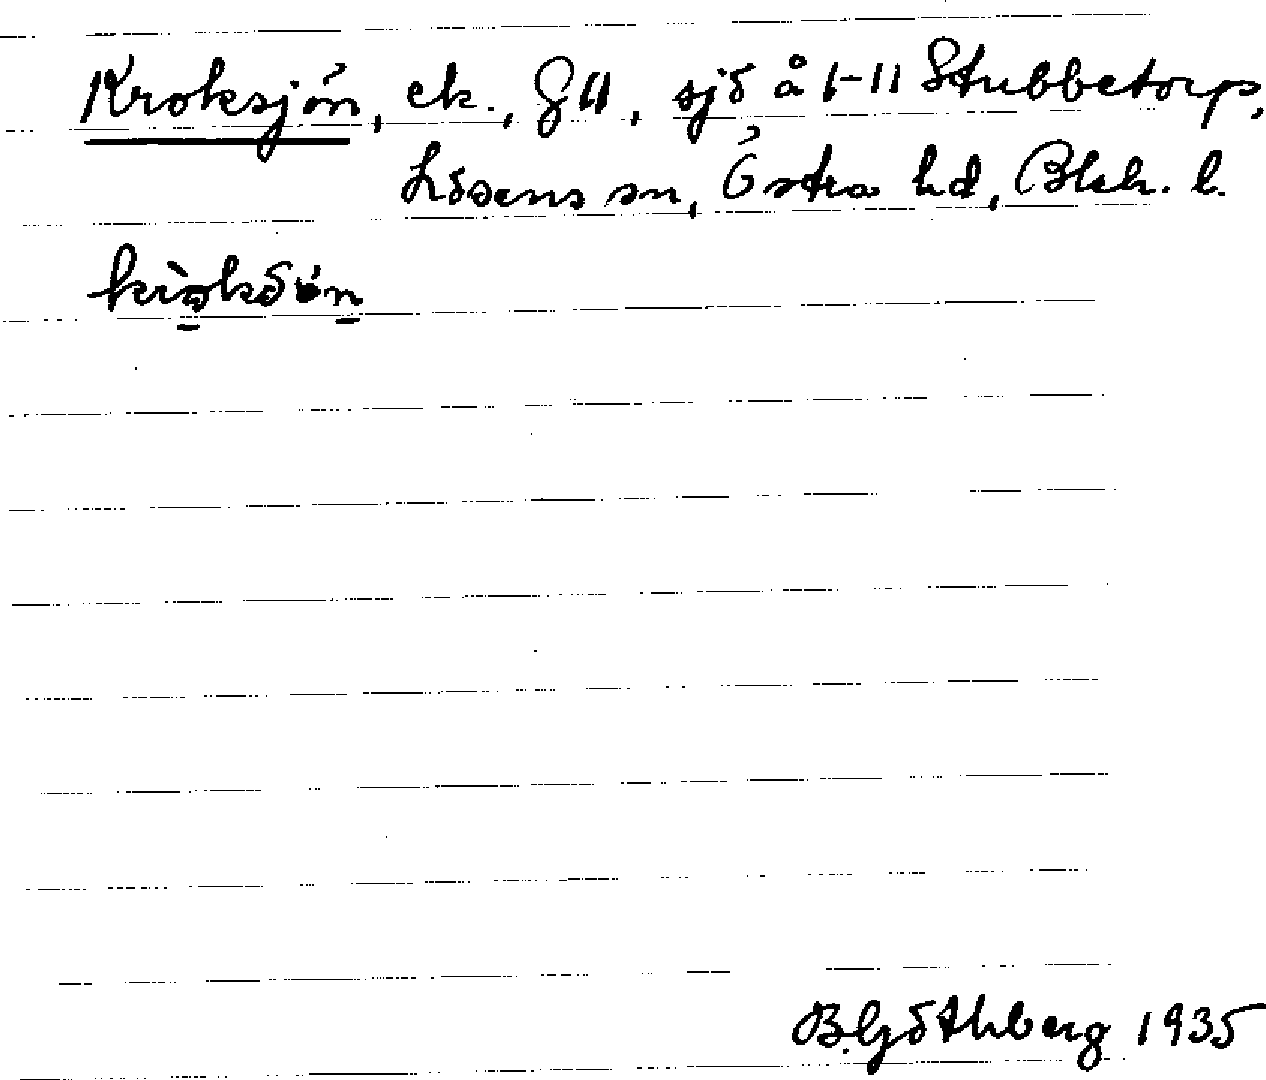 Kroksjön, ek., G11, sjö å 1-11 Stubbetorp,
Lösens sn, Östra hd, Blek. l.
B. Göthberg 1935